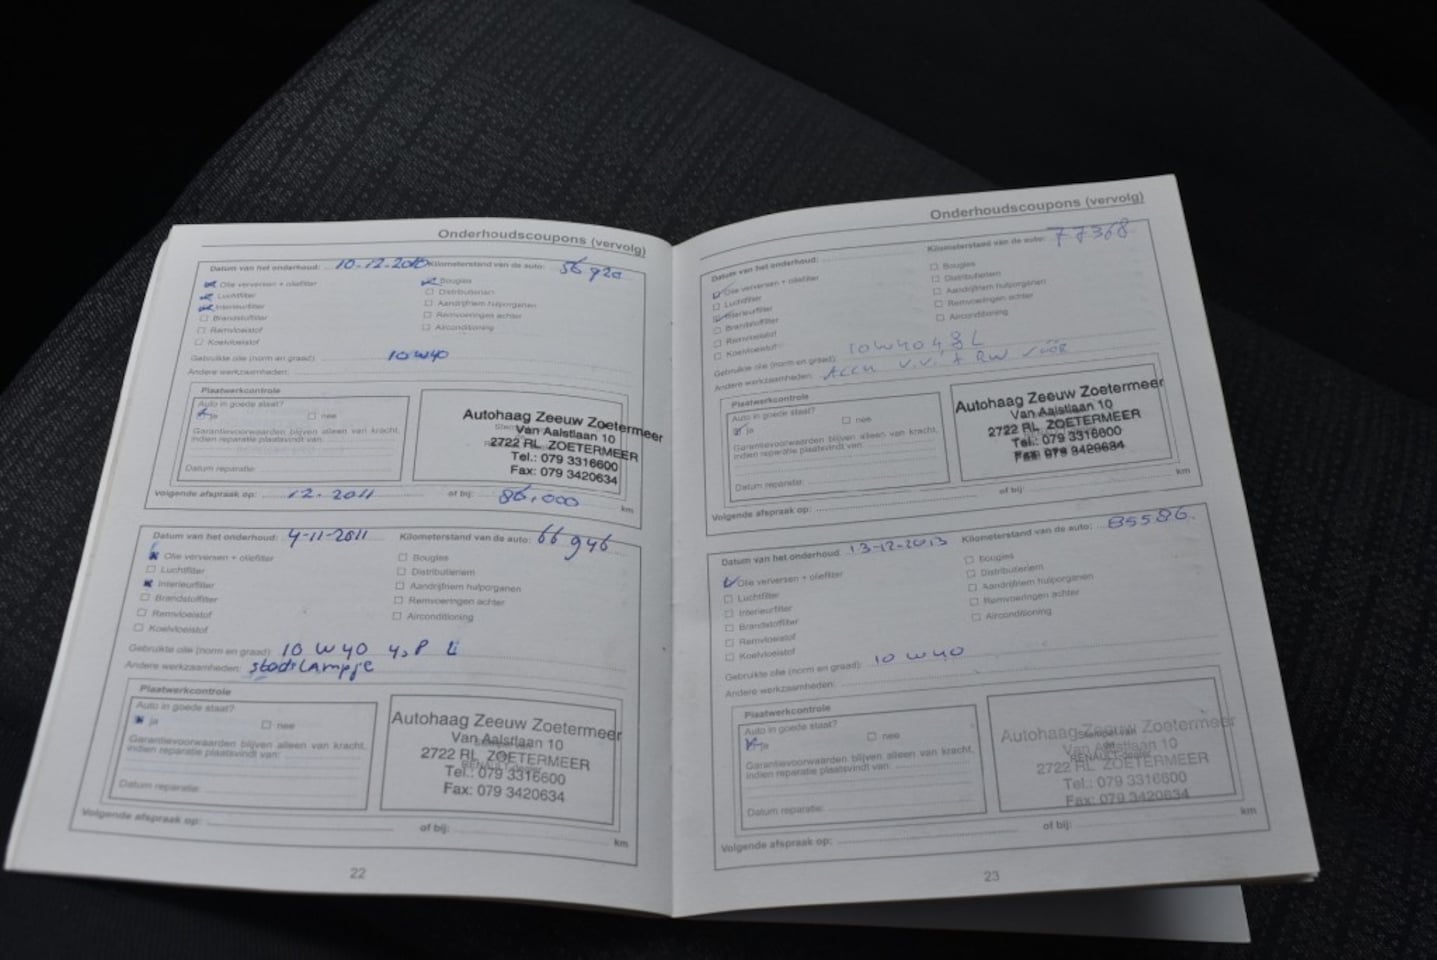 Onderhoudscoupons (vervolg)
Datum van het onderhoud: 10-12-2010 Kilometerstand van de auto: 56920
Olie verversen + oliefilter
Bougies
Luchtfilter
Distributieriem
Interieurfilter
Aandrijfriem hulporganen
Brandstoffilter
Remvoeringen achter
Remvloeistof
Airconditioning
Koelvloeistof
Gebruikte olie (norm en graad): 10W40
Andere werkzaamheden:
Plaatwerkcontrole
Auto in goede staat?
ja
nee
Garantievoorwaarden blijven alleen van kracht,
indien reparatie plaatsvindt van:
Datum reparatie:
Autohaag Zeeuw Zoetermeer
Van Aalstlaan 10
2722 RL ZOETERMEER
Tel.: 079 3316600
Fax: 079 3420634
Volgende afspraak op: 12-2011 of bij: 86.000 km
Datum van het onderhoud: 4-11-2011 Kilometerstand van de auto: 66946
Olie verversen + oliefilter
Bougies
Luchtfilter
Distributieriem
Interieurfilter
Aandrijfriem hulporganen
Brandstoffilter
Remvoeringen achter
Remvloeistof
Airconditioning
Koelvloeistof
Gebruikte olie (norm en graad): 10 W 40
Andere werkzaamheden: stadslampje
Plaatwerkcontrole
Auto in goede staat?
ja
nee
Garantievoorwaarden blijven alleen van kracht,
indien reparatie plaatsvindt van:
Datum reparatie:
Autohaag Zeeuw Zoetermeer
Van Aalstlaan 10
2722 RL ZOETERMEER
Tel.: 079 3316600
Fax: 079 3420634
Volgende afspraak op: of bij: km
22
Onderhoudscoupons (vervolg)
Datum van het onderhoud: Kilometerstand van de auto: 77368
Olie verversen + oliefilter
Bougies
Luchtfilter
Distributieriem
Interieurfilter
Aandrijfriem hulporganen
Brandstoffilter
Remvoeringen achter
Remvloeistof
Airconditioning
Koelvloeistof
Gebruikte olie (norm en graad): 10W40
Andere werkzaamheden: Accu V.V. + RW vóór
Plaatwerkcontrole
Auto in goede staat?
ja
nee
Garantievoorwaarden blijven alleen van kracht,
indien reparatie plaatsvindt van:
Datum reparatie:
Autohaag Zeeuw Zoetermeer
Van Aalstlaan 10
2722 RL ZOETERMEER
Tel.: 079 3316600
Fax: 079 3420634
Volgende afspraak op: of bij: km
Datum van het onderhoud: 13-12-2013 Kilometerstand van de auto: 85586.
Olie verversen + oliefilter
Bougies
Luchtfilter
Distributieriem
Interieurfilter
Aandrijfriem hulporganen
Brandstoffilter
Remvoeringen achter
Remvloeistof
Airconditioning
Koelvloeistof
Gebruikte olie (norm en graad): 10 W40
Andere werkzaamheden:
Plaatwerkcontrole
Auto in goede staat?
ja
nee
Garantievoorwaarden blijven alleen van kracht,
indien reparatie plaatsvindt van:
Datum reparatie:
Autohaag Zeeuw Zoetermeer
Van Aalstlaan 10
2722 RL ZOETERMEER
Tel.: 079 3316600
Fax: 079 3420634
Volgende afspraak op: of bij: km
23